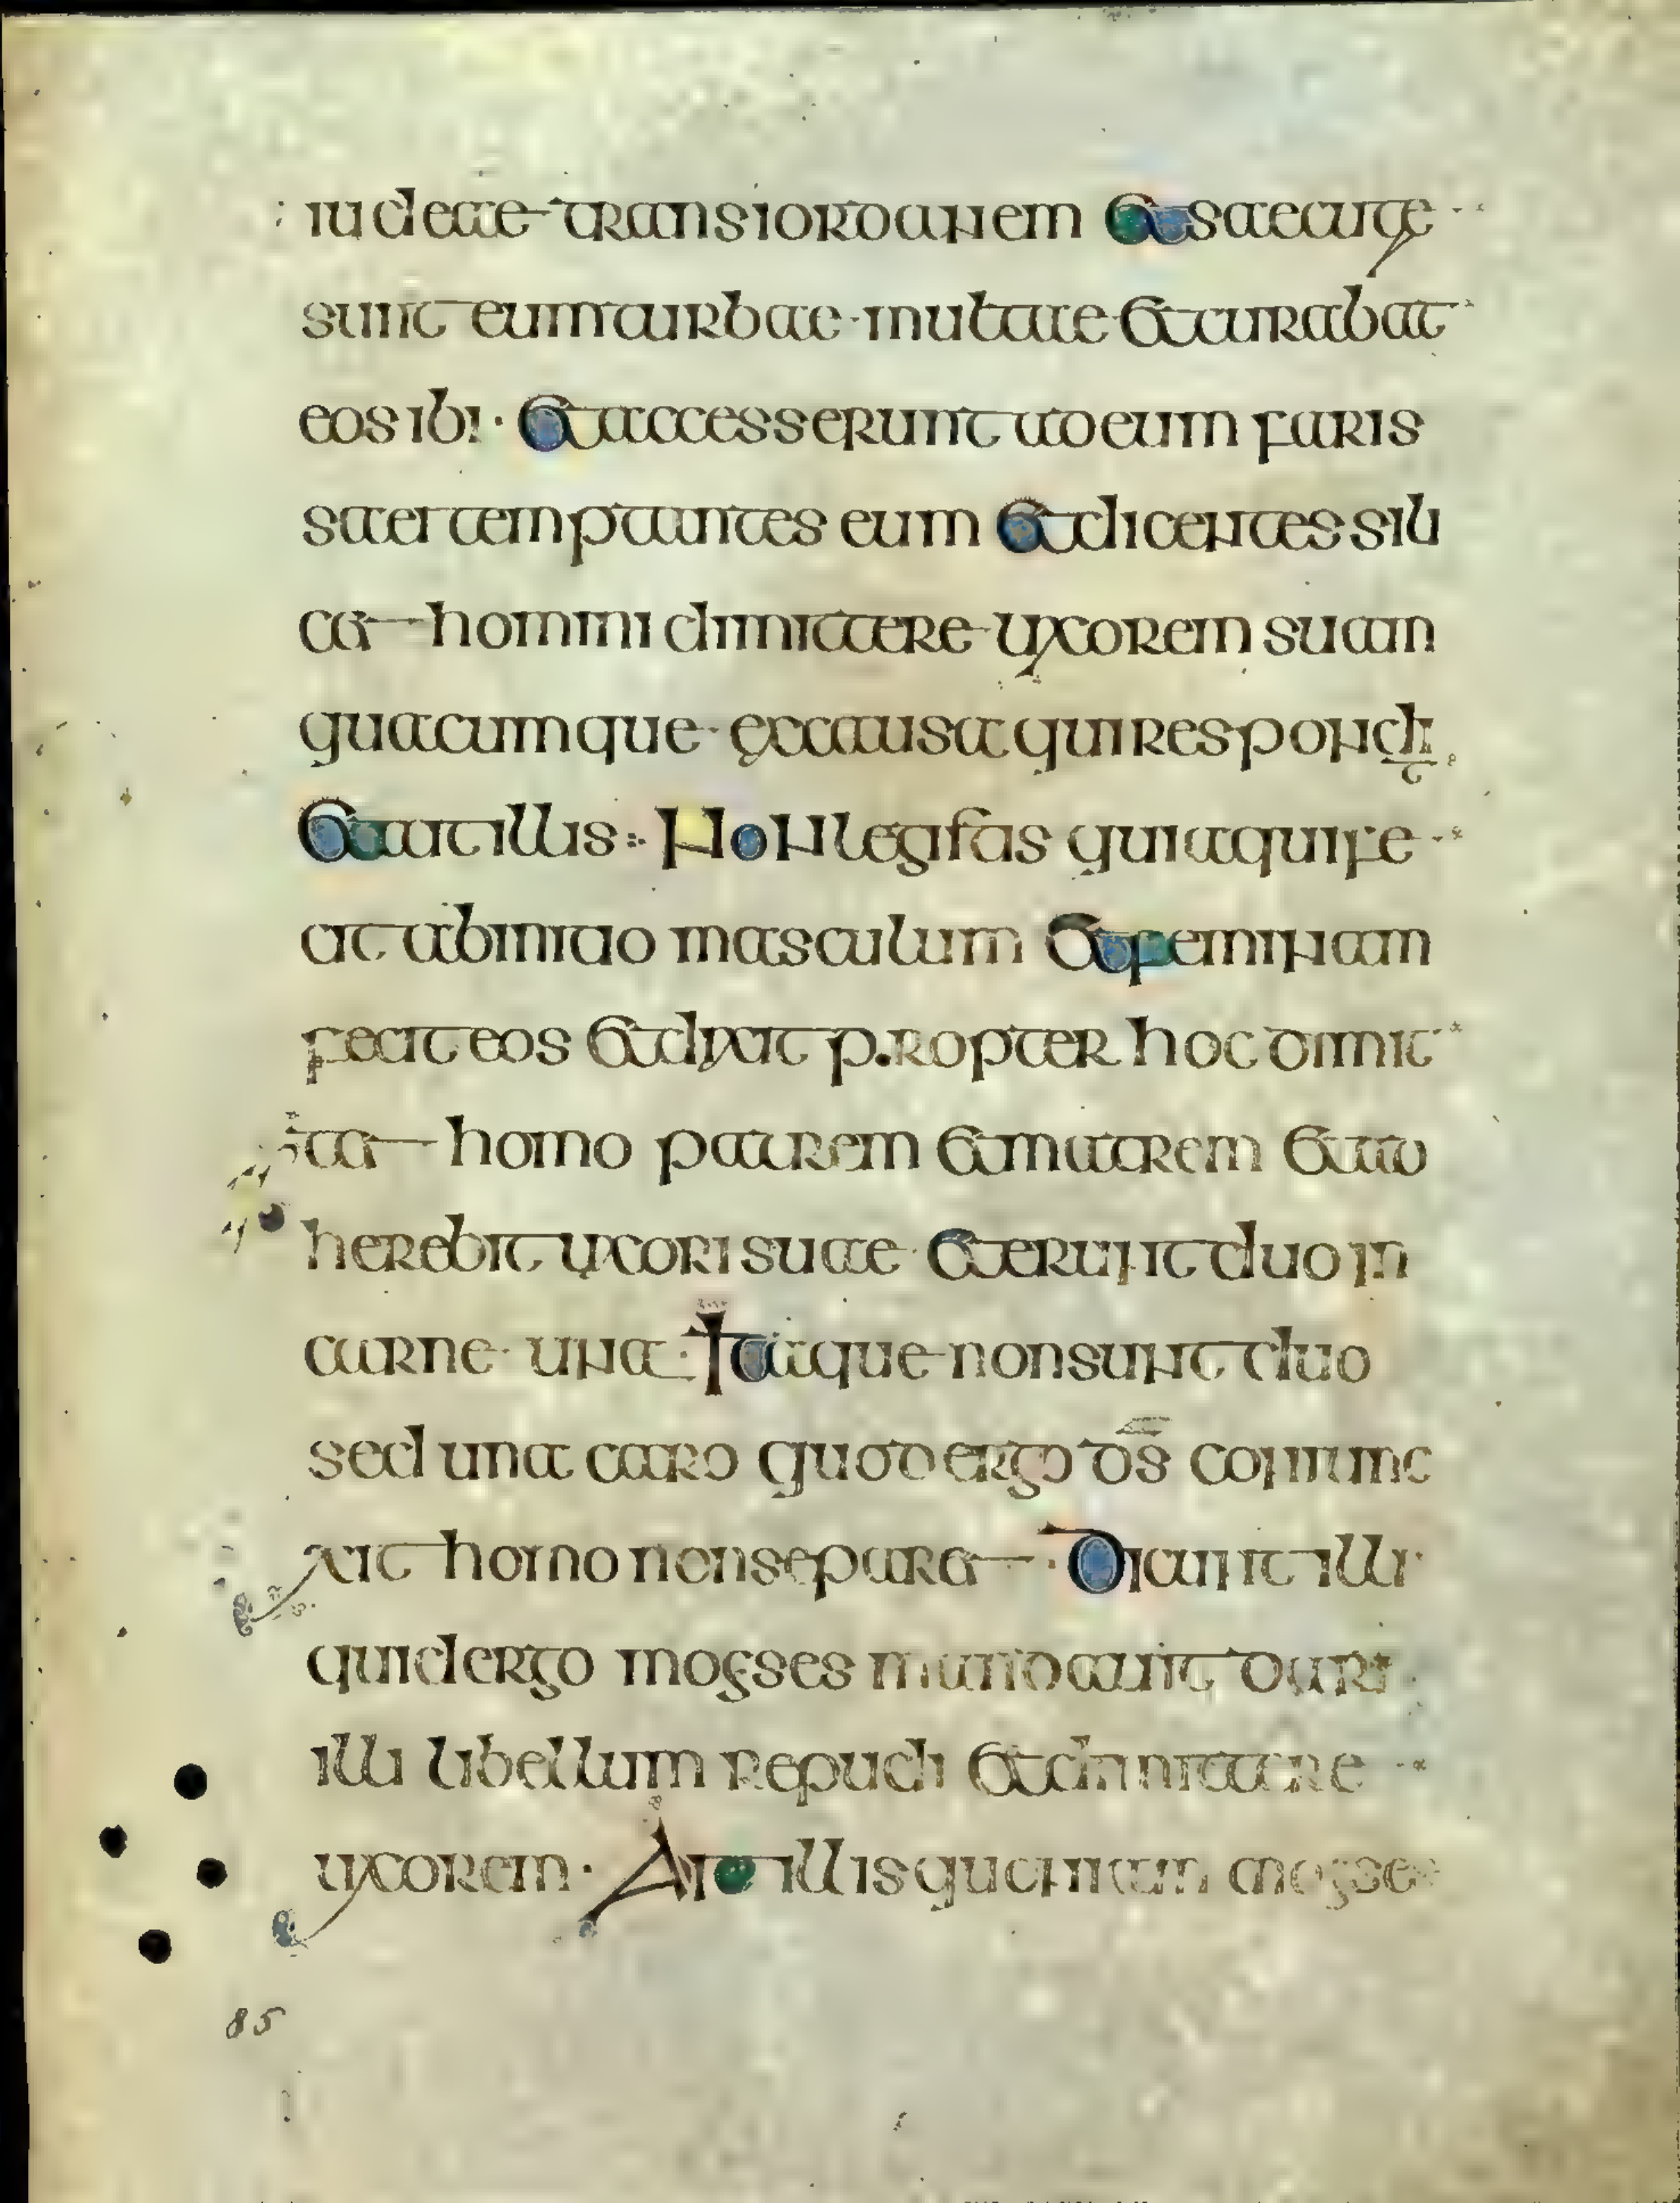 iudeae transiordanem et saecutae
sunt eum turbae multae et curabat
eos ibi · et accesserunt ad eum faris
saei temptantes eum et dicentes si li
cet homini dimittere uxorem suam
quacumque ex causa qui respondit
et ait illis : Non legistis quia qui fe
cit ab initio masculum et feminam
fecit eos et dixit propter hoc dimit
tet homo patrem et matrem et ad
herebit uxori suae et erunt duo in
carne una · Itaque non sunt duo
sed una caro quod ergo ds coniunc
xit homo non separet · Dicunt illi
quid ergo moyses mandauit dari
illi libellum repudi et dimittere
uxorem · Ait illis quoniam moyses
85